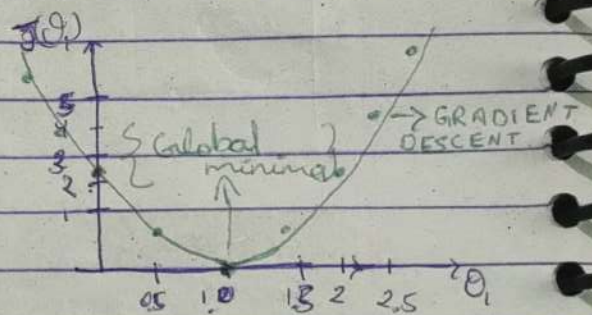 J(θ₁)
5
4
3
2
1
{ Global }
minima
→ GRADIENT
DESCENT
0.5 1.0 1.5 2 2.5 θ₁